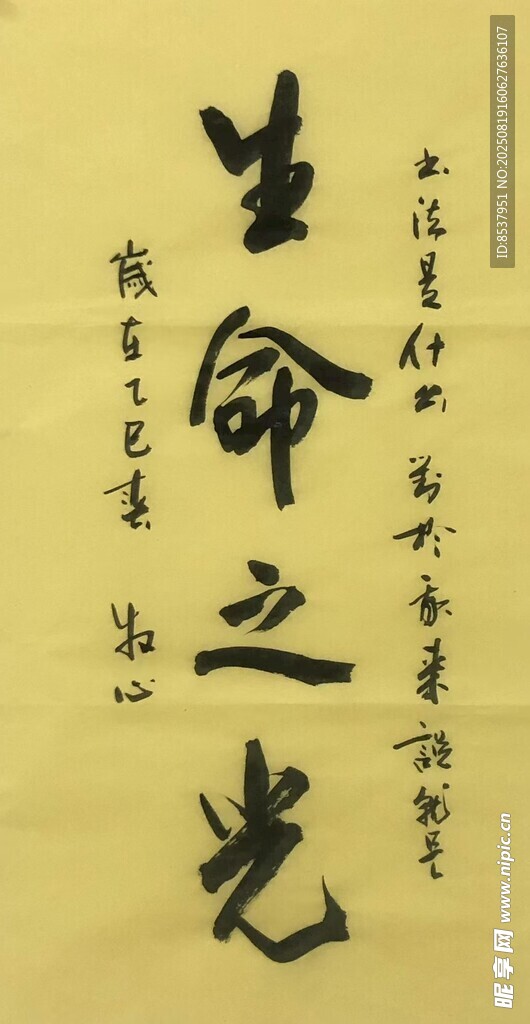 书法是什么 對於我来說就是
生命之光
歲在乙巳春 牧心
ID:8537951 NO:20250819160627636107
昵享网 www.nipic.cn